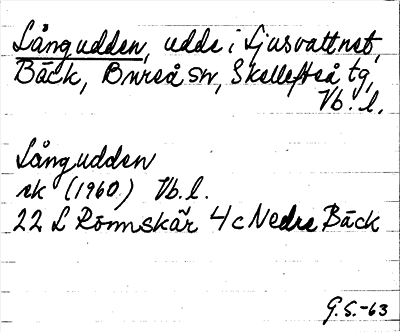 Långudden, udde i Ljusvattnet,
Bäck, Bureå sn, Skellefteå tg,
Vb. l.
Långudden
ek (1960) Vb. l.
22 L Rönnskär 4 c Nedre Bäck
G.S.-63